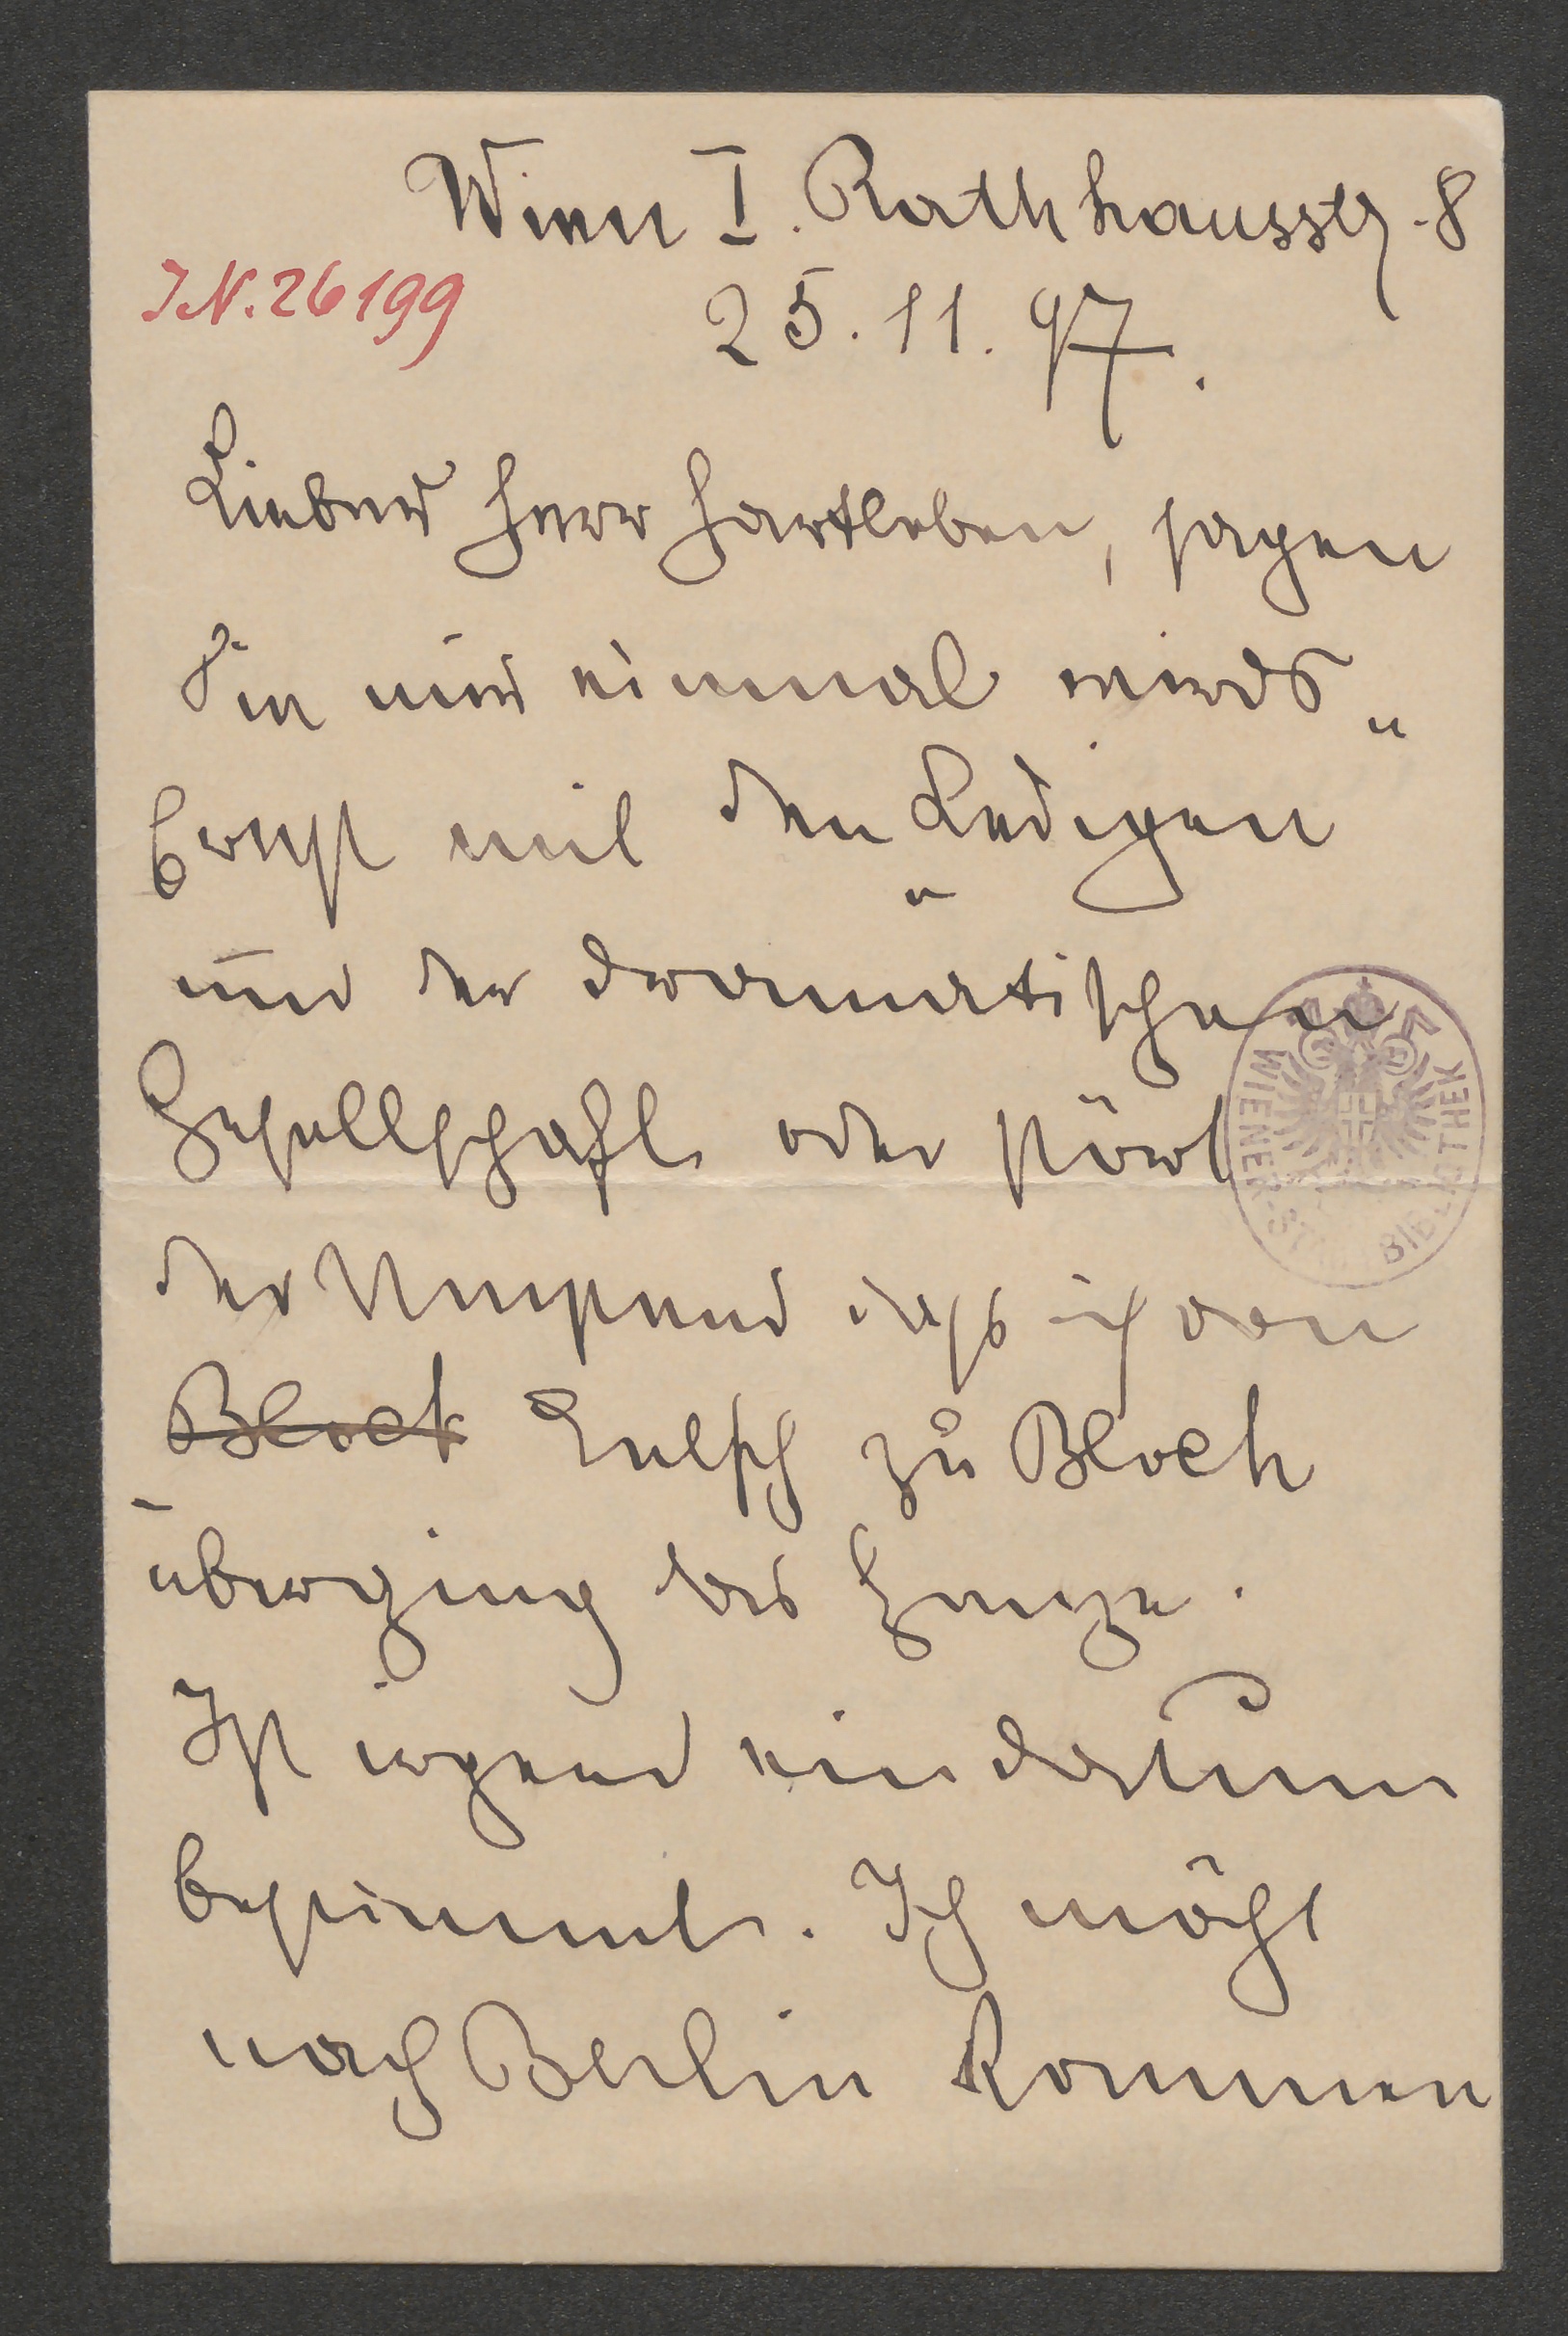 Wien I. Rathhausstr. 8
J.N. 26199
25.11.97.
Lieber Herr Hartleben, sagen
Sie mir einmal wirds
Ernst mit den „Ledigen“
und der dramatischen
Gesellschaft oder stört
der Umstand dass ich von
Bloch Entsch zu Bloch
überging das Ganze.
Ist irgend ein datum
bestimmt. Ich möcht
nach Berlin kommen
WIENER STADTBIBLIOTHEK